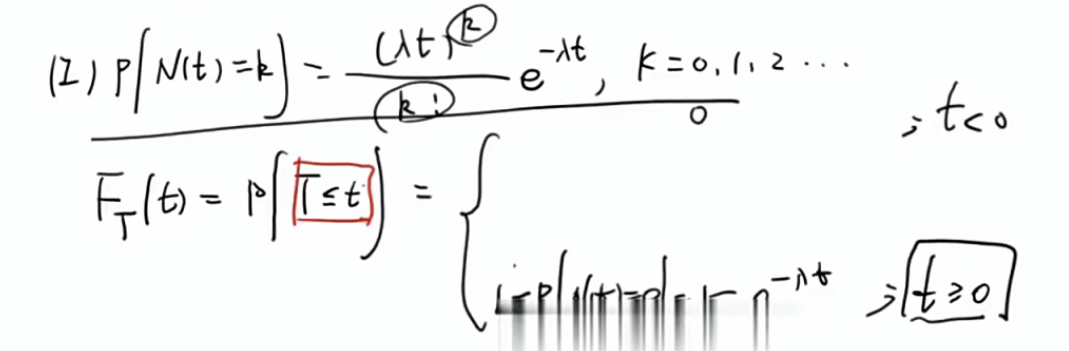 (1) P(N(t)=k) = (λt)^k / k! e^{-λt}, K=0,1,2 ...
F_T(t) = P(T≤t) = { 0 ; t<0
1-P(N(t)=0) = 1- e^{-λt} ; t≥0